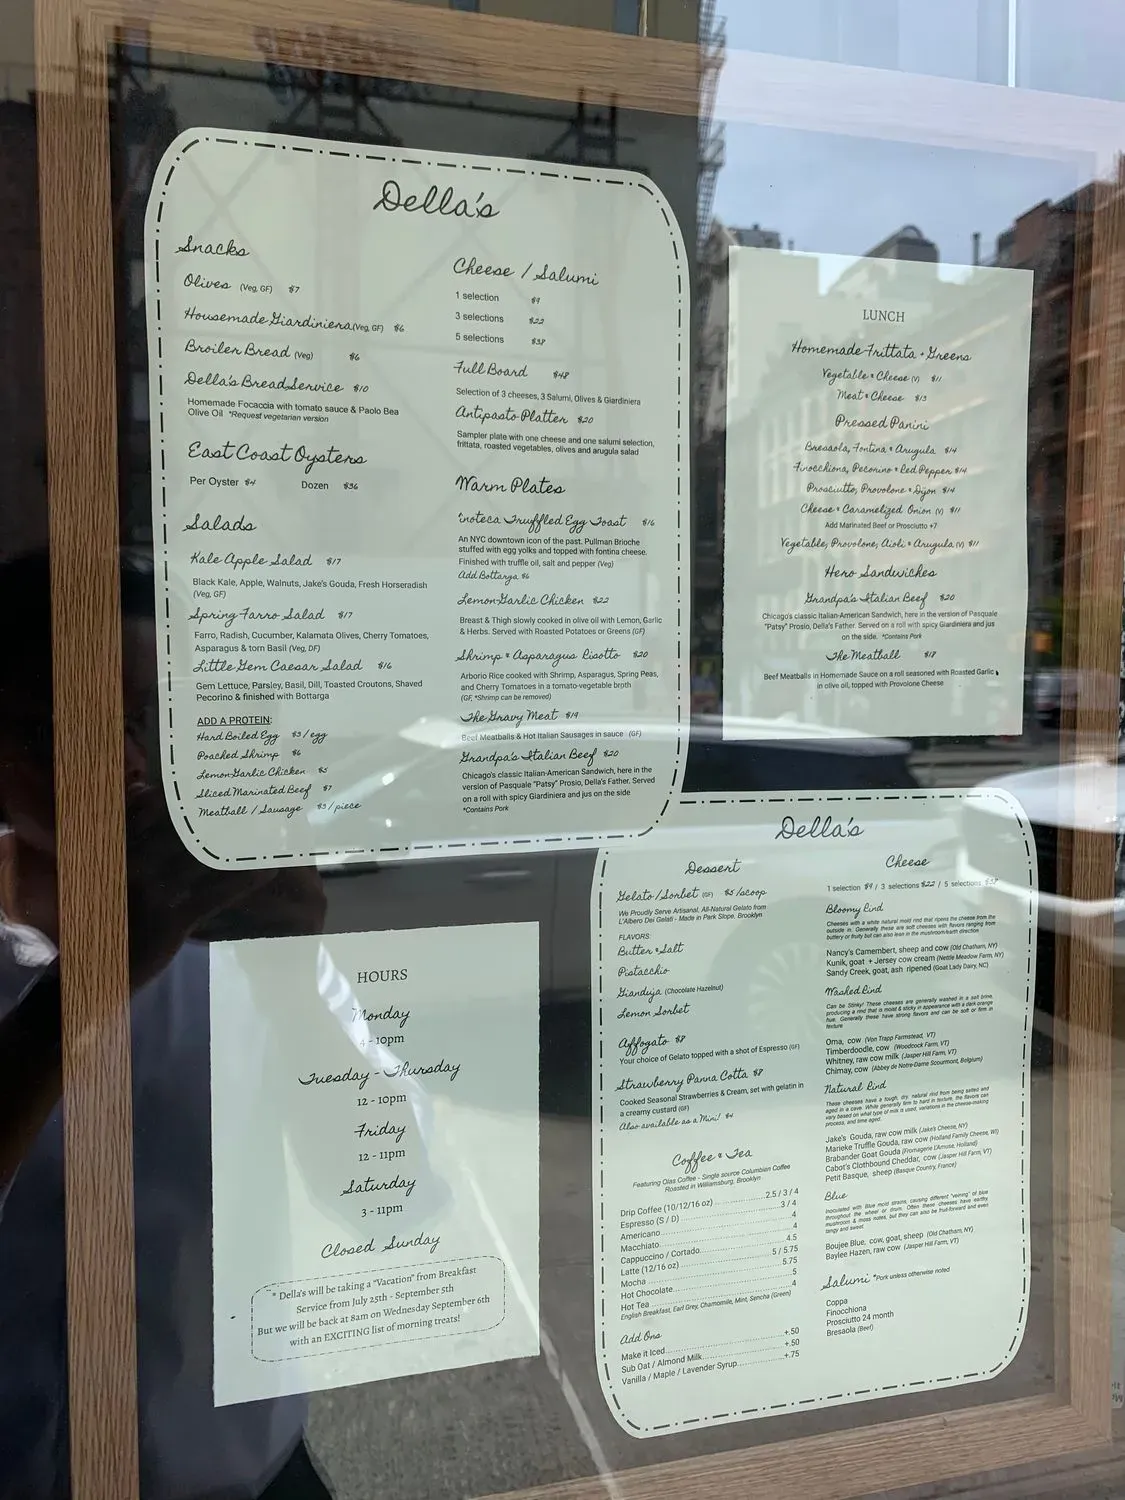 Della's
Snacks
Olives (Veg, GF) $7
Housemade Giardiniera (Veg, GF) $6
Broiler Bread (Veg) $6
Della's Bread Service $10
Homemade Focaccia with tomato sauce & Paolo Bea
Olive Oil *Request vegetarian version
East Coast Oysters
Per Oyster $4 Dozen $36
Salads
Kale Apple Salad $17
Black Kale, Apple, Walnuts, Jake's Gouda, Fresh Horseradish
(Veg, GF)
Spring Farro Salad $17
Farro, Radish, Cucumber, Kalamata Olives, Cherry Tomatoes,
Asparagus & torn Basil (Veg, DF)
Little Gem Caesar Salad $16
Gem Lettuce, Parsley, Basil, Dill, Toasted Croutons, Shaved
Pecorino & finished with Bottarga
ADD A PROTEIN:
Hard Boiled Egg $3/egg
Poached Shrimp $6
Lemon Garlic Chicken $5
Sliced Marinated Beef $7
Meatball / Sausage $3/piece
Cheese / Salumi
1 selection $9
3 selections $22
5 selections $38
Full Board $48
Selection of 3 cheeses, 3 Salumi, Olives & Giardiniera
Antipasto Platter $20
Sampler plate with one cheese and one salumi selection,
frittata, roasted vegetables, olives and arugula salad
Warm Plates
'inoteca Truffled Egg Toast $16
An NYC downtown icon of the past. Pullman Brioche
stuffed with egg yolks and topped with fontina cheese.
Finished with truffle oil, salt and pepper (Veg)
Add Bottarga $6
Lemon Garlic Chicken $22
Breast & Thigh slowly cooked in olive oil with Lemon, Garlic
& Herbs. Served with Roasted Potatoes or Greens (GF)
Shrimp & Asparagus Risotto $20
Arborio Rice cooked with Shrimp, Asparagus, Spring Peas,
and Cherry Tomatoes in a tomato-vegetable broth
(GF, *Shrimp can be removed)
The Gravy Meat $19
Beef Meatballs & Hot Italian Sausages in sauce (GF)
Grandpa's Italian Beef $20
Chicago's classic Italian-American Sandwich, here in the
version of Pasquale "Patsy" Prosio, Della's Father. Served
on a roll with spicy Giardiniera and jus on the side
*Contains Pork
LUNCH
Homemade Frittata + Greens
Vegetable & Cheese (V) $11
Meat & Cheese $13
Pressed Panini
Bresaola, Fontina & Arugula $14
Finocchiona, Pecorino & Red Pepper $14
Prosciutto, Provolone & Dijon $14
Cheese & Caramelized Onion (V) $11
Add Marinated Beef or Prosciutto +7
Vegetable, Provolone, Aioli & Arugula (V) $11
Hero Sandwiches
Grandpa's Italian Beef $20
Chicago's classic Italian-American Sandwich, here in the version of Pasquale
"Patsy" Prosio, Della's Father. Served on a roll with spicy Giardiniera and jus
on the side. *Contains Pork
The Meatball $18
Beef Meatballs in Homemade Sauce on a roll seasoned with Roasted Garlic
in olive oil, topped with Provolone Cheese
HOURS
Monday
4 - 10pm
Tuesday - Thursday
12 - 10pm
Friday
12 - 11pm
Saturday
3 - 11pm
Closed Sunday
* Della's will be taking a "Vacation" from Breakfast
Service from July 25th - September 5th
But we will be back at 8am on Wednesday September 6th
with an EXCITING list of morning treats!
Della's
Dessert
Gelato/Sorbet (GF) $5/scoop
We Proudly Serve Artisanal, All-Natural Gelato from
L'Albero Dei Gelati - Made in Park Slope, Brooklyn
FLAVORS:
Butter & Salt
Pistacchio
Gianduja (Chocolate Hazelnut)
Lemon Sorbet
Affogato $8
Your choice of Gelato topped with a shot of Espresso (GF)
Strawberry Panna Cotta $8
Cooked Seasonal Strawberries & Cream, set with gelatin in
a creamy custard (GF)
Also available as a Mini! $4
Coffee & Tea
Featuring Olas Coffee - Single source Columbian Coffee
Roasted in Williamsburg, Brooklyn
Drip Coffee (10/12/16 oz) 2.5 / 3 / 4
Espresso (S / D) 3 / 4
Americano 4
Macchiato 4
Cappuccino / Cortado 4.5
Latte (12/16 oz) 5 / 5.75
Mocha 5.75
Hot Chocolate 5
Hot Tea 4
English Breakfast, Earl Grey, Chamomile, Mint, Sencha (Green)
Add Ons
Make it Iced +.50
Sub Oat / Almond Milk +.50
Vanilla / Maple / Lavender Syrup +.75
Cheese
1 selection $9 / 3 selections $22 / 5 selections $38
Bloomy Rind
Cheeses with a white natural mold rind that ripens the cheese from the
outside in. Generally these are soft cheeses with flavors ranging from
buttery or fruity but can also lean in the mushroom/earth direction
Nancy's Camembert, sheep and cow (Old Chatham, NY)
Kunik, goat + Jersey cow cream (Nettle Meadow Farm, NY)
Sandy Creek, goat, ash ripened (Goat Lady Dairy, NC)
Washed Rind
Can be Stinky! These cheeses are generally washed in a salt brine,
producing a rind that is moist & sticky in appearance with a dark orange
hue. Generally these have strong flavors and can be soft or firm in
texture
Oma, cow (Von Trapp Farmstead, VT)
Timberdoodle, cow (Woodcock Farm, VT)
Whitney, raw cow milk (Jasper Hill Farm, VT)
Chimay, cow (Abbey de Notre-Dame Scourmont, Belgium)
Natural Rind
These cheeses have a tough, dry, natural rind from being salted and
aged in a cave. While generally firm to hard in texture, the flavors can
vary based on what type of milk is used, variations in the cheese-making
process, and time aged.
Jake's Gouda, raw cow milk (Jake's Cheese, NY)
Marieke Truffle Gouda, raw cow (Holland Family Cheese, WI)
Brabander Goat Gouda (Fromagerie L'Amuse, Holland)
Cabot's Clothbound Cheddar, cow (Jasper Hill Farm, VT)
Petit Basque, sheep (Basque Country, France)
Blue
Inoculated with Blue mold strains, causing different "veining" of blue
throughout the wheel or drum. Often these cheeses have earthy,
mushroom & moss notes, but they can also be fruit-forward and even
tangy and sweet.
Boujee Blue, cow, goat, sheep (Old Chatham, NY)
Baylee Hazen, raw cow (Jasper Hill Farm, VT)
Salumi *Pork unless otherwise noted
Coppa
Finocchiona
Prosciutto 24 month
Bresaola (Beef)